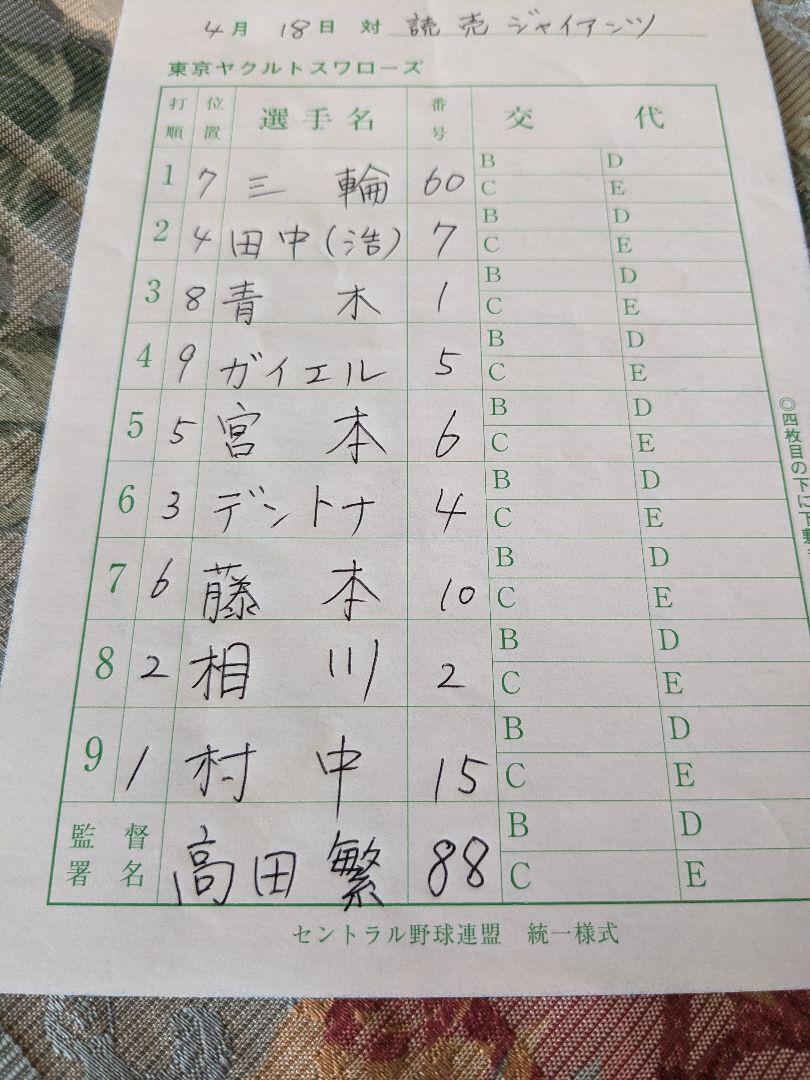 4月 18日 対 読売ジャイアンツ
東京ヤクルトスワローズ
打順 位置 選手名 番号 交代
1 7 三輪 60 B D
C E
2 4 田中(浩) 7 B D
C E
3 8 青木 1 B D
C E
4 9 ガイエル 5 B D
C E
5 5 宮本 6 B D
C E
6 3 デントナ 4 B D
C E
7 6 藤本 10 B D
C E
8 2 相川 2 B D
C E
9 1 村中 15 B D
C E
監督署名 高田繁 88 B D
C E
セントラル野球連盟 統一様式
◎四枚目の下に下敷